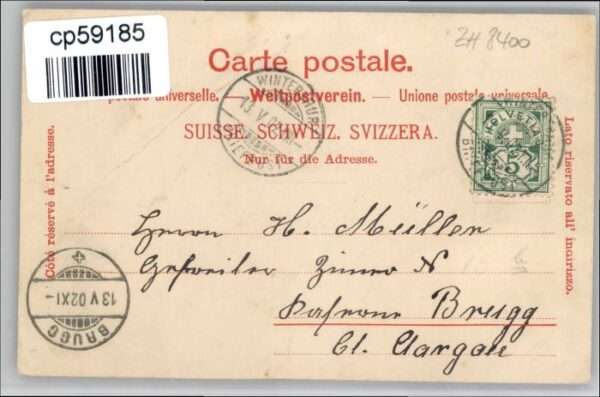 cp59185
ZH 8400
Carte postale.
postale universelle. — Weltpostverein. — Unione postale universale.
SUISSE. SCHWEIZ. SVIZZERA.
Nur für die Adresse.
Côté réservé à l'adresse.
Lato riservato all' indirizzo.
WINTERTHUR
13. V. 02
BRIEFPOST
HELVETIA
5
Herrn H. Müller
Gefreiter Zimmer N
Kaserne Brugg
Ct. Aargau
BRUGG
13 V 02 XI–